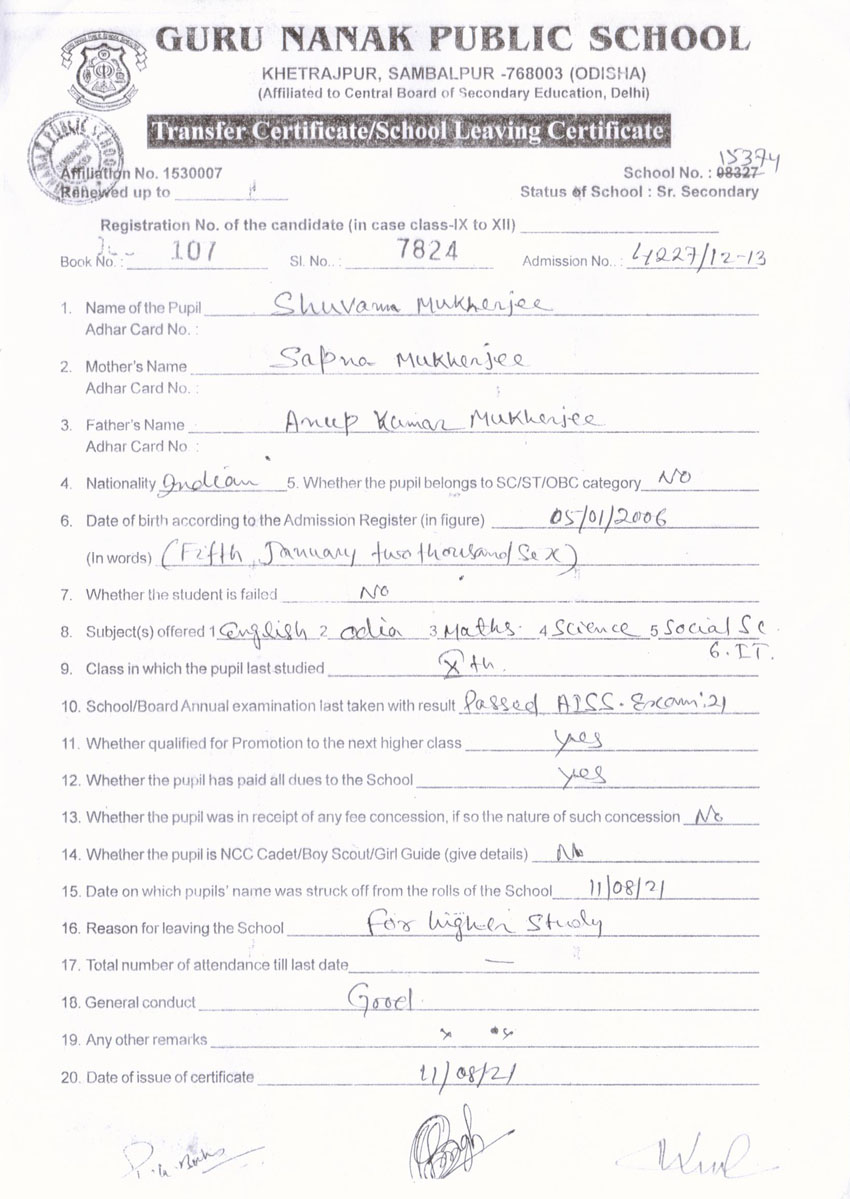 GURU NANAK PUBLIC SCHOOL
KHETRAJPUR, SAMBALPUR -768003 (ODISHA)
(Affiliated to Central Board of Secondary Education, Delhi)
Transfer Certificate/School Leaving Certificate
Affiliation No. 1530007 School No. : 08327 15374
Renewed up to Status of School : Sr. Secondary
Registration No. of the candidate (in case class-IX to XII)
Book No. : 107 Sl. No.. : 7824 Admission No.. : 4227/12-13
1. Name of the Pupil Shuvam Mukherjee
Adhar Card No. :
2. Mother's Name Sapna Mukherjee
Adhar Card No. :
3. Father's Name Anup Kumar Mukherjee
Adhar Card No :
4. Nationality Indian 5. Whether the pupil belongs to SC/ST/OBC category NO
6. Date of birth according to the Admission Register (in figure) 05/01/2006
(In words) (Fifth, January two thousand Sex)
7. Whether the student is failed No
8. Subject(s) offered 1 English 2 odia 3 Maths. 4 Science 5 Social Sc
6. IT.
9. Class in which the pupil last studied Xth.
10. School/Board Annual examination last taken with result Passed AISS. Exam'.21
11. Whether qualified for Promotion to the next higher class yes
12. Whether the pupil has paid all dues to the School yes
13. Whether the pupil was in receipt of any fee concession, if so the nature of such concession No
14. Whether the pupil is NCC Cadet/Boy Scout/Girl Guide (give details) No
15. Date on which pupils' name was struck off from the rolls of the School 11/08/21
16. Reason for leaving the School For higher Study
17. Total number of attendance till last date —
18. General conduct Good.
19. Any other remarks x x
20. Date of issue of certificate 11/08/21